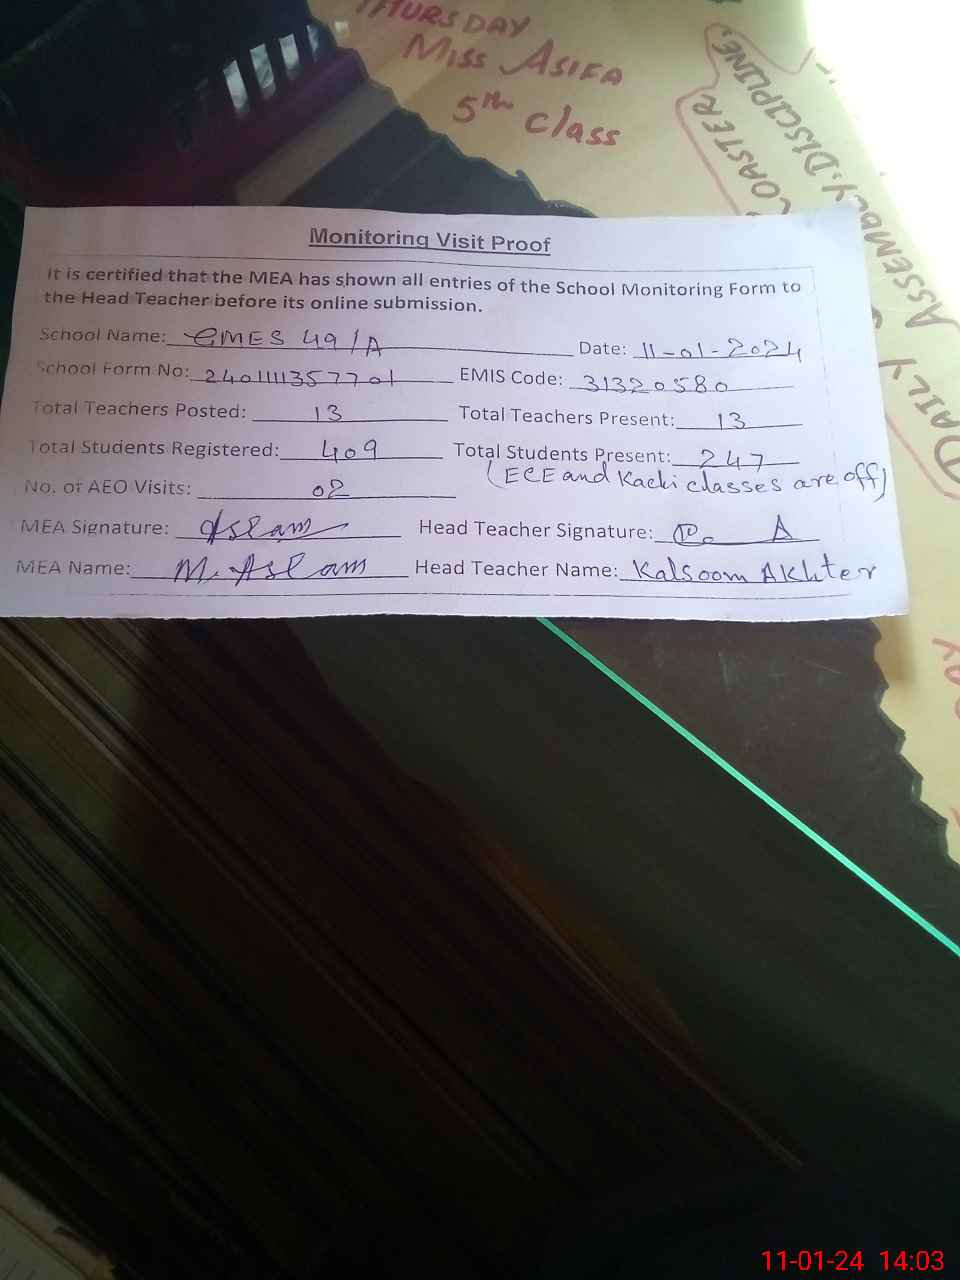 THURSDAY
MISS ASIFA
5th class
COASTER
DISCIPLINE,
DAILY ASSEMBLY,
Monitoring Visit Proof
It is certified that the MEA has shown all entries of the School Monitoring Form to
the Head Teacher before its online submission.
School Name: GMES 49/A Date: 11-01-2024
School Form No: 2401111357701 EMIS Code: 31320580
Total Teachers Posted: 13 Total Teachers Present: 13
Total Students Registered: 409 Total Students Present: 247
(ECE and Kachi classes are off)
No. of AEO Visits: 02
MEA Signature: Aslam Head Teacher Signature: A
MEA Name: M. Aslam Head Teacher Name: Kalsoom Akhter
11-01-24 14:03